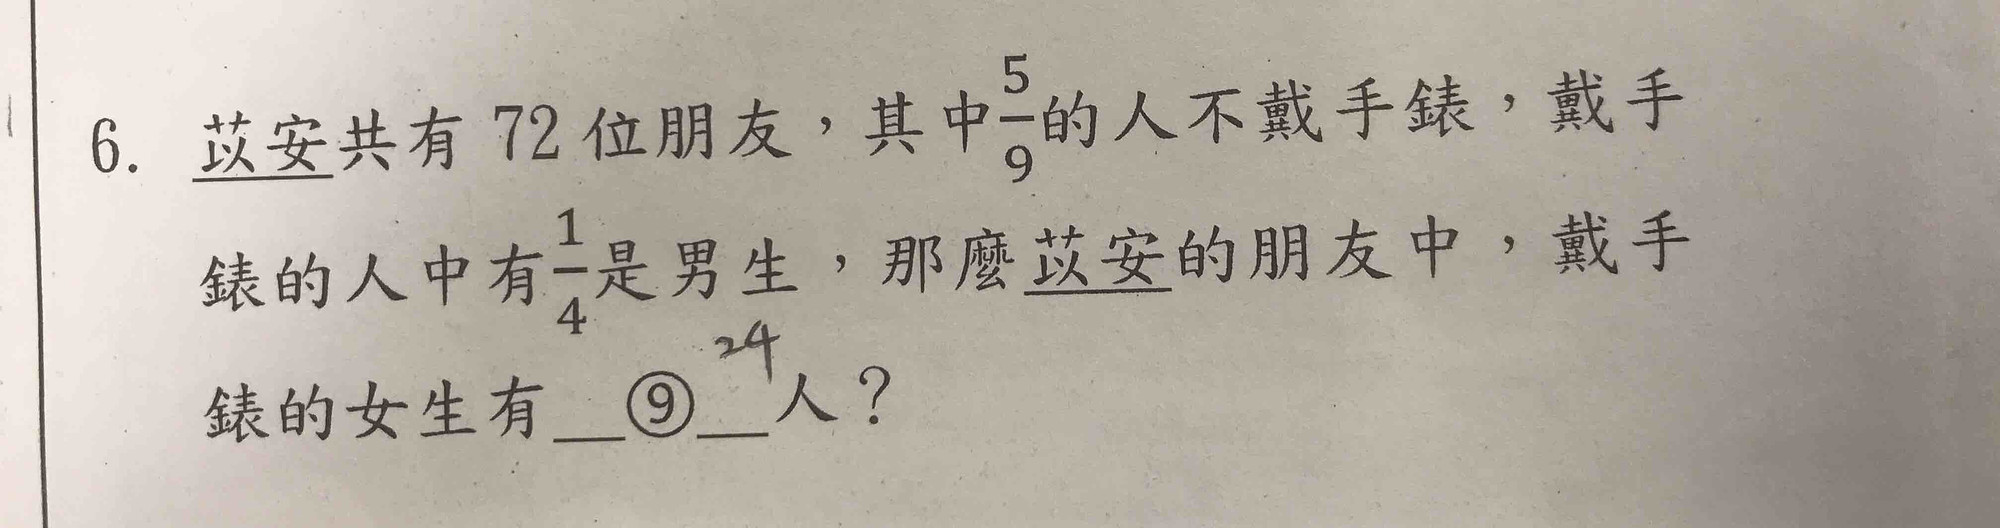 6. 苡安共有 72 位朋友，其中5/9的人不戴手錶，戴手
錶的人中有1/4是男生，那麼苡安的朋友中，戴手
24
錶的女生有__⑨__人？